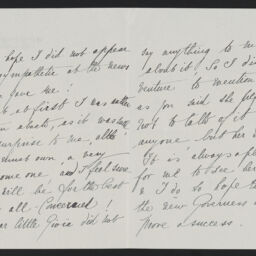 hope I did not appear
sympathetic at the news
gave me!
at first I was rather
as it was such
surprise to me, altho'
must own a very
some one, and I feel sure
will be for the best
all concerned!
little Girie did not
say anything to me
about it! So I did
venture to mention
as you said she
not to talk of it
anyone. but her
It is always a
for me to see her
& I do so hope
the new Governess
prove a success.